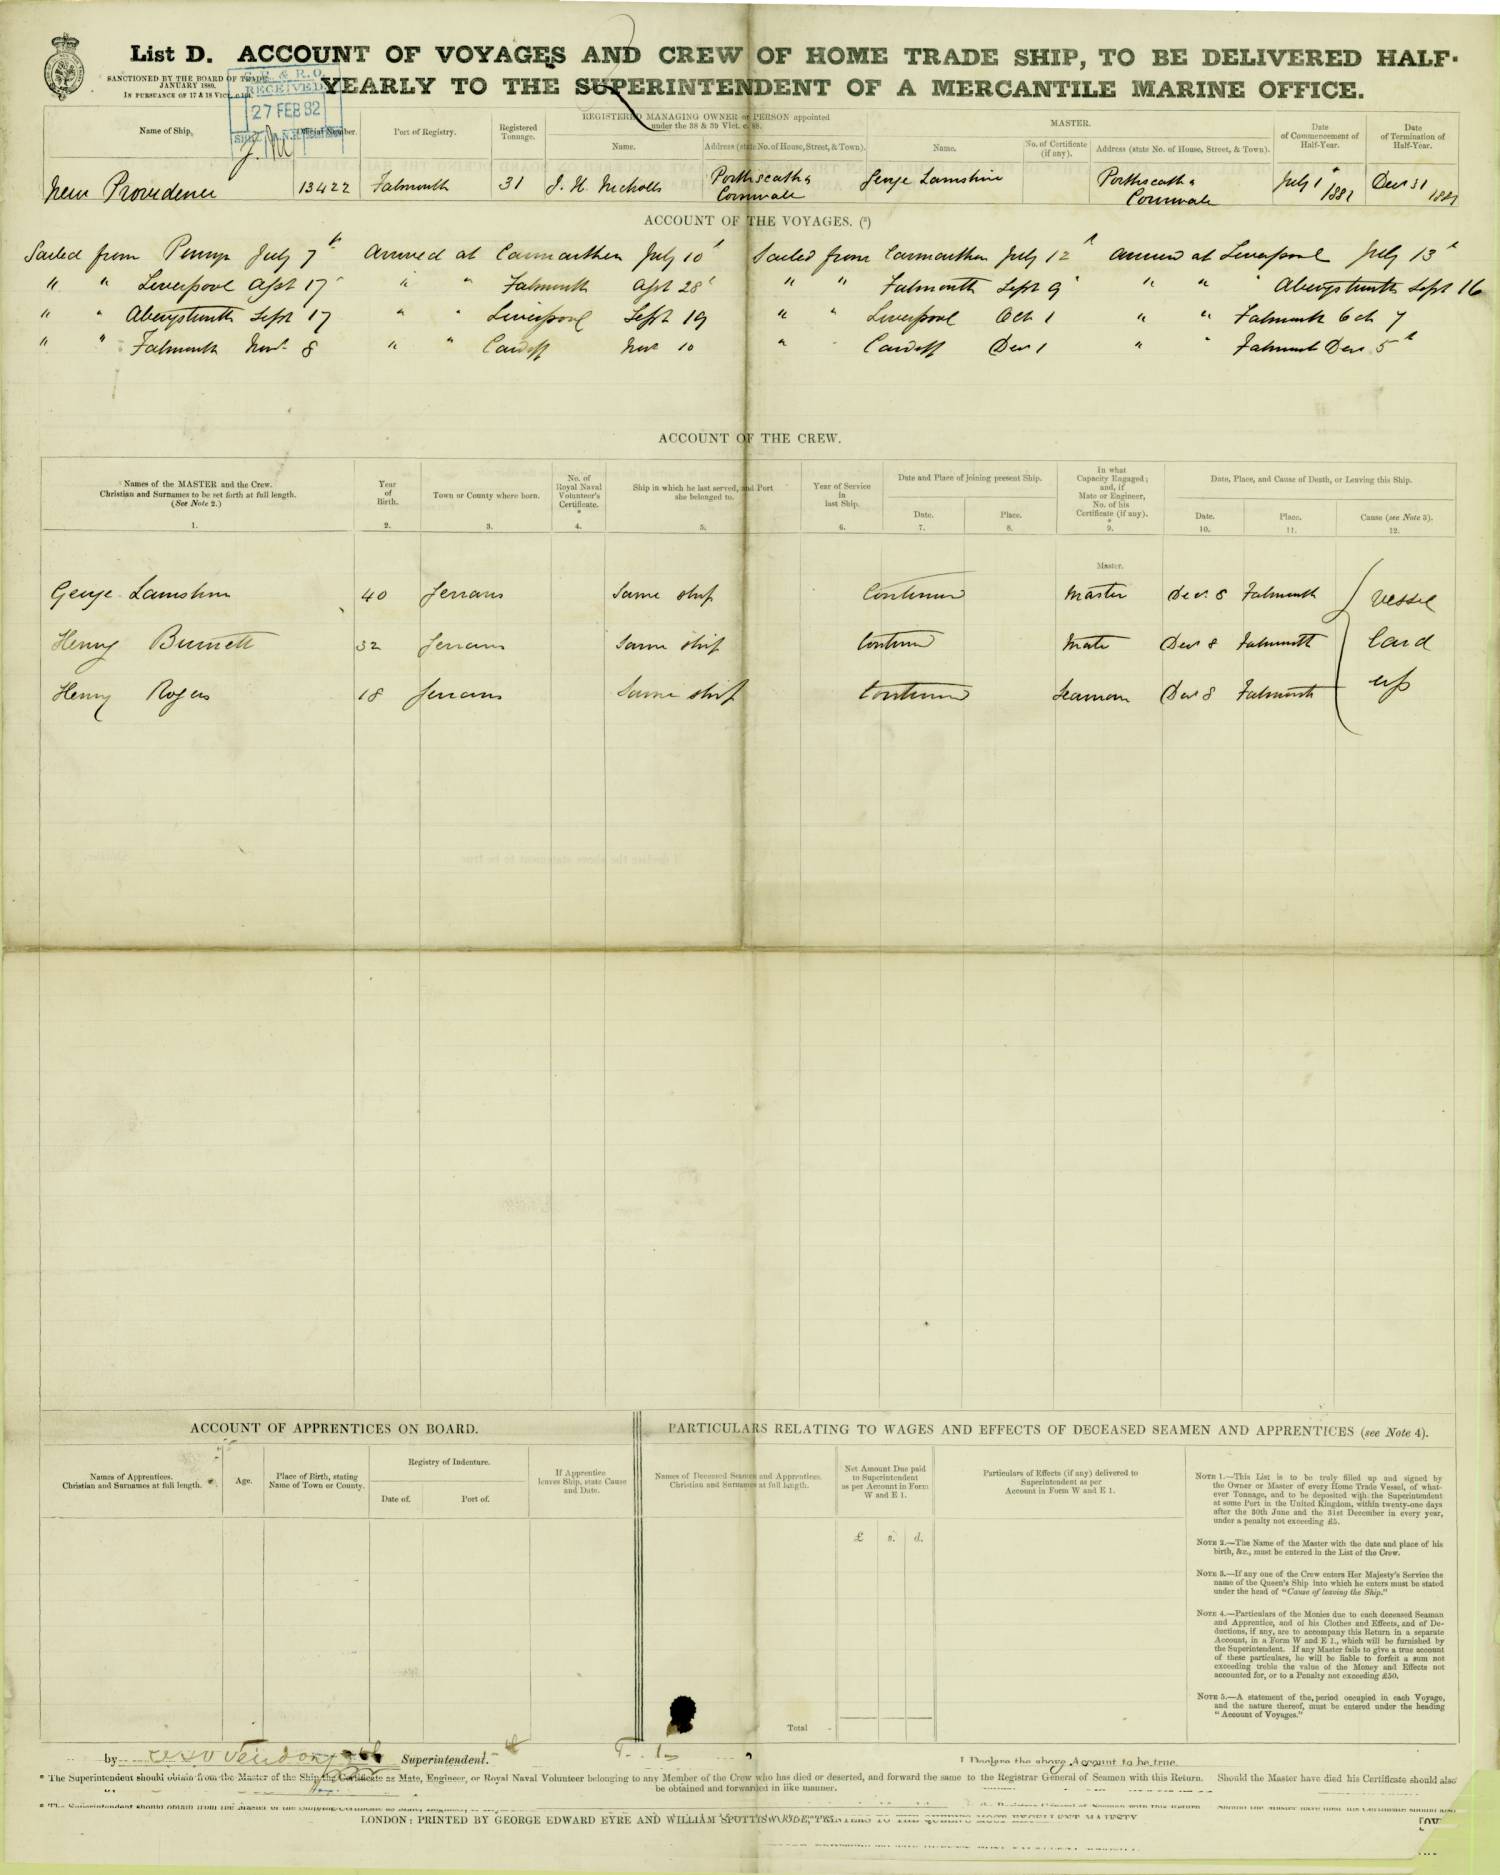 List D. ACCOUNT OF VOYAGES AND CREW OF HOME TRADE SHIP, TO BE DELIVERED HALF-
YEARLY TO THE SUPERINTENDENT OF A MERCANTILE MARINE OFFICE.
SANCTIONED BY THE BOARD OF TRADE
JANUARY 1880.
IN PURSUANCE OF 17 & 18 VICT.
& R.O.
RECEIVED
27 FEB 82
REGISTERED MANAGING OWNER or PERSON appointed
under the 38 & 39 Vict. c. 88.
MASTER.
Name of Ship. Official Number. Port of Registry. Registered Tonnage. Name. Address (state No. of House, Street, & Town). Name. No. of Certificate (if any). Address (state No. of House, Street, & Town). Date of Commencement of Half-Year. Date of Termination of Half-Year.
New Providence 13422 Falmouth 31 J. H. Nicholls Porthscatha Cornwall George Lamshire Porthscatha Cornwall July 1st 1881 Decr 31 1881
ACCOUNT OF THE VOYAGES. (*)
Sailed from Penryn July 7th Arrived at Carmarthen July 10th Sailed from Carmarthen July 12th Arrived at Liverpool July 13th
" " Liverpool Agst 17 " " Falmouth Agst 28 " " Falmouth Sept 9 " " Aberystwith Sept 16
" " Aberystwith Sept 17 " " Liverpool Sept 19 " " Liverpool Octr 1 " " Falmouth Octr 7
" " Falmouth Novr 8 " " Cardiff Novr 10 " " Cardiff Decr 1 " " Falmouth Decr 5th
ACCOUNT OF THE CREW.
Names of the MASTER and the Crew.
Christian and Surnames to be set forth at full length.
(See Note 2.)
1.
Year of Birth.
2.
Town or County where born.
3.
No. of Royal Naval Volunteer's Certificate.
*
4.
Ship in which he last served, and Port she belonged to.
5.
Year of Service in last Ship.
6.
Date and Place of joining present Ship.
Date.
7.
Place.
8.
In what Capacity Engaged; and, if Mate or Engineer, No. of his Certificate (if any).
*
9.
Date, Place, and Cause of Death, or Leaving this Ship.
Date.
10.
Place.
11.
Cause (see Note 3).
12.
Master.
George Lamshire 40 Gerrans Same ship Continued Master Decr 8 Falmouth vessel
Henry Burnett 32 Gerrans Same ship Continued Mate Decr 8 Falmouth laid
Henry Rogers 18 Gerrans Same ship Continued Seaman Decr 8 Falmouth up
ACCOUNT OF APPRENTICES ON BOARD.
Names of Apprentices.
Christian and Surnames at full length.
Age.
Place of Birth, stating Name of Town or County.
Registry of Indenture.
Date of.
Port of.
If Apprentice leaves Ship, state Cause and Date.
PARTICULARS RELATING TO WAGES AND EFFECTS OF DECEASED SEAMEN AND APPRENTICES (see Note 4).
Names of Deceased Seamen and Apprentices.
Christian and Surnames at full length.
Net Amount Due paid to Superintendent as per Account in Form W and E 1.
£ s. d.
Particulars of Effects (if any) delivered to Superintendent as per Account in Form W and E 1.
Total
NOTE 1.—This List is to be truly filled up and signed by
the Owner or Master of every Home Trade Vessel, of what-
ever Tonnage, and to be deposited with the Superintendent
at some Port in the United Kingdom, within twenty-one days
after the 30th June and the 31st December in every year,
under a penalty not exceeding £5.
NOTE 2.—The Name of the Master with the date and place of his
birth, &c., must be entered in the List of the Crew.
NOTE 3.—If any one of the Crew enters Her Majesty's Service the
name of the Queen's Ship into which he enters must be stated
under the head of "Cause of leaving the Ship."
NOTE 4.—Particulars of the Monies due to each deceased Seaman
and Apprentice, and of his Clothes and Effects, and of De-
ductions, if any, are to accompany this Return in a separate
Account, in a Form W and E 1., which will be furnished by
the Superintendent. If any Master fails to give a true account
of these particulars, he will be liable to forfeit a sum not
exceeding treble the value of the Money and Effects not
accounted for, or to a Penalty not exceeding £50.
NOTE 5.—A statement of the period occupied in each Voyage,
and the nature thereof, must be entered under the heading
"Account of Voyages."
by Superintendent. I Declare the above Account to be true.
* The Superintendent should obtain from the Master of the Ship the Certificate as Mate, Engineer, or Royal Naval Volunteer belonging to any Member of the Crew who has died or deserted, and forward the same to the Registrar General of Seamen with this Return. Should the Master have died his Certificate should also
be obtained and forwarded in like manner.
LONDON: PRINTED BY GEORGE EDWARD EYRE AND WILLIAM SPOTTISWOODE, PRINTERS TO THE QUEEN'S MOST EXCELLENT MAJESTY